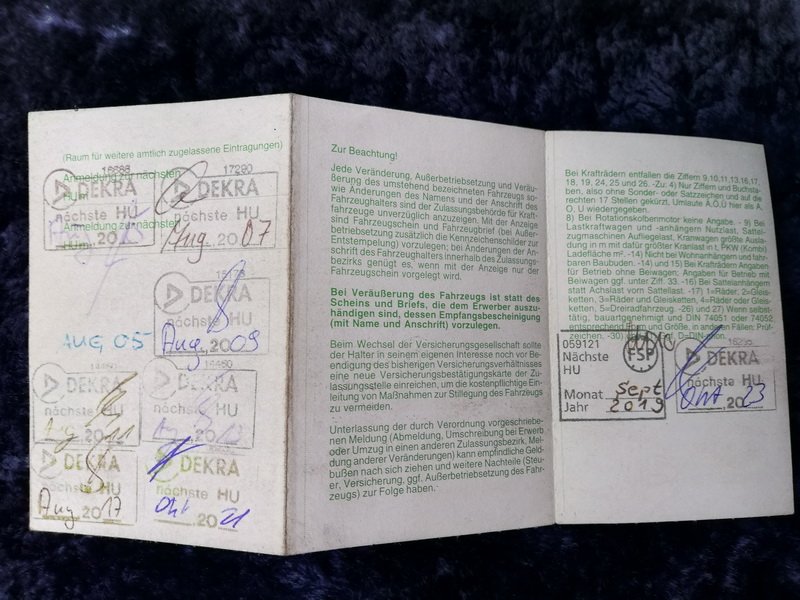 (Raum für weitere amtlich zugelassene Eintragungen)
Anmeldung zur nächsten
HU
17290
DEKRA
DEKRA
nächste HU
nächste HU
Anmeldung zur nächsten
Aug. 2007
HU
DEKRA
AUG 05
Aug. 2009
DEKRA
DEKRA
nächste HU
nächste HU
11
DEKRA
DEKRA
nächste HU
nächste HU
Aug 2017
Okt 2021
Zur Beachtung!
Jede Veränderung, Außerbetriebsetzung und Veräu-
ßerung des umstehend bezeichneten Fahrzeugs so-
wie Änderungen des Namens und der Anschrift des
Fahrzeughalters sind der Zulassungsbehörde für Kraft-
fahrzeuge unverzüglich anzuzeigen. Mit der Anzeige
sind Fahrzeugschein und Fahrzeugbrief (bei Außer-
betriebsetzung zusätzlich die Kennzeichenschilder zur
Entstempelung) vorzulegen; bei Änderungen der An-
schrift des Fahrzeughalters innerhalb des Zulassungs-
bezirks genügt es, wenn mit der Anzeige nur der
Fahrzeugschein vorgelegt wird.
Bei Veräußerung des Fahrzeugs ist statt des
Scheins und Briefs, die dem Erwerber auszu-
händigen sind, dessen Empfangsbescheinigung
(mit Name und Anschrift) vorzulegen.
Beim Wechsel der Versicherungsgesellschaft sollte
der Halter in seinem eigenen Interesse noch vor Be-
endigung des bisherigen Versicherungsverhältnisses
eine neue Versicherungsbestätigungskarte der Zu-
lassungsstelle einreichen, um die kostenpflichtige Ein-
leitung von Maßnahmen zur Stillegung des Fahrzeugs
zu vermeiden.
Unterlassung der durch Verordnung vorgeschriebe-
nen Meldung (Abmeldung, Umschreibung bei Erwerb
oder Umzug in einen anderen Zulassungsbezirk, Mel-
dung anderer Veränderungen) kann empfindliche Geld-
bußen nach sich ziehen und weitere Nachteile (Steu-
er, Versicherung, ggf. Außerbetriebsetzung des Fahr-
zeugs) zur Folge haben.
Bei Krafträdern entfallen die Ziffern 9,10,11,13,16,17,
18, 19, 24, 25 und 26. -Zu: 4) Nur Ziffern und Buchsta-
ben, also ohne Sonder- oder Satzzeichen und auf die
rechten 17 Stellen gekürzt, Umlaute Ä,Ö,Ü hier als A,
O, U wiedergegeben.
8) Bei Rotationskolbenmotor keine Angabe. - 9) Bei
Lastkraftwagen und -anhängern Nutzlast, Sattel-
zugmaschinen Aufliegelast, Kranwagen größte Ausla-
dung in m mit dafür größter Kranlast in t, PKW (Kombi)
Ladefläche m². -14) Nicht bei Wohnanhängern und fahr-
baren Baubuden. -14) und 15) Bei Krafträdern Angaben
für Betrieb ohne Beiwagen; Angaben für Betrieb mit
Beiwagen ggf. unter Ziff. 33. -16) Bei Sattelanhängern
statt Achslast vorn Sattellast. -17) 1=Räder, 2=Gleis-
ketten, 3=Räder und Gleisketten, 4=Räder oder Gleis-
ketten, 5=Dreiradfahrzeug. -26) und 27) Wenn selbst-
tätig, bauartgenehmigt und DIN 74051 oder 74052
entsprechend Form und Größe, in anderen Fällen: Prüf-
zeichen. -30)
059121
FSP
Nächste
HU
DEKRA
nächste HU
Monat Sept
Jahr 2019
Okt 2023